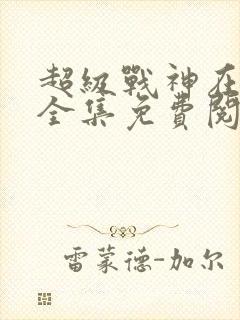 超級戰神在
全集免費閱
雷蒙德-加尔